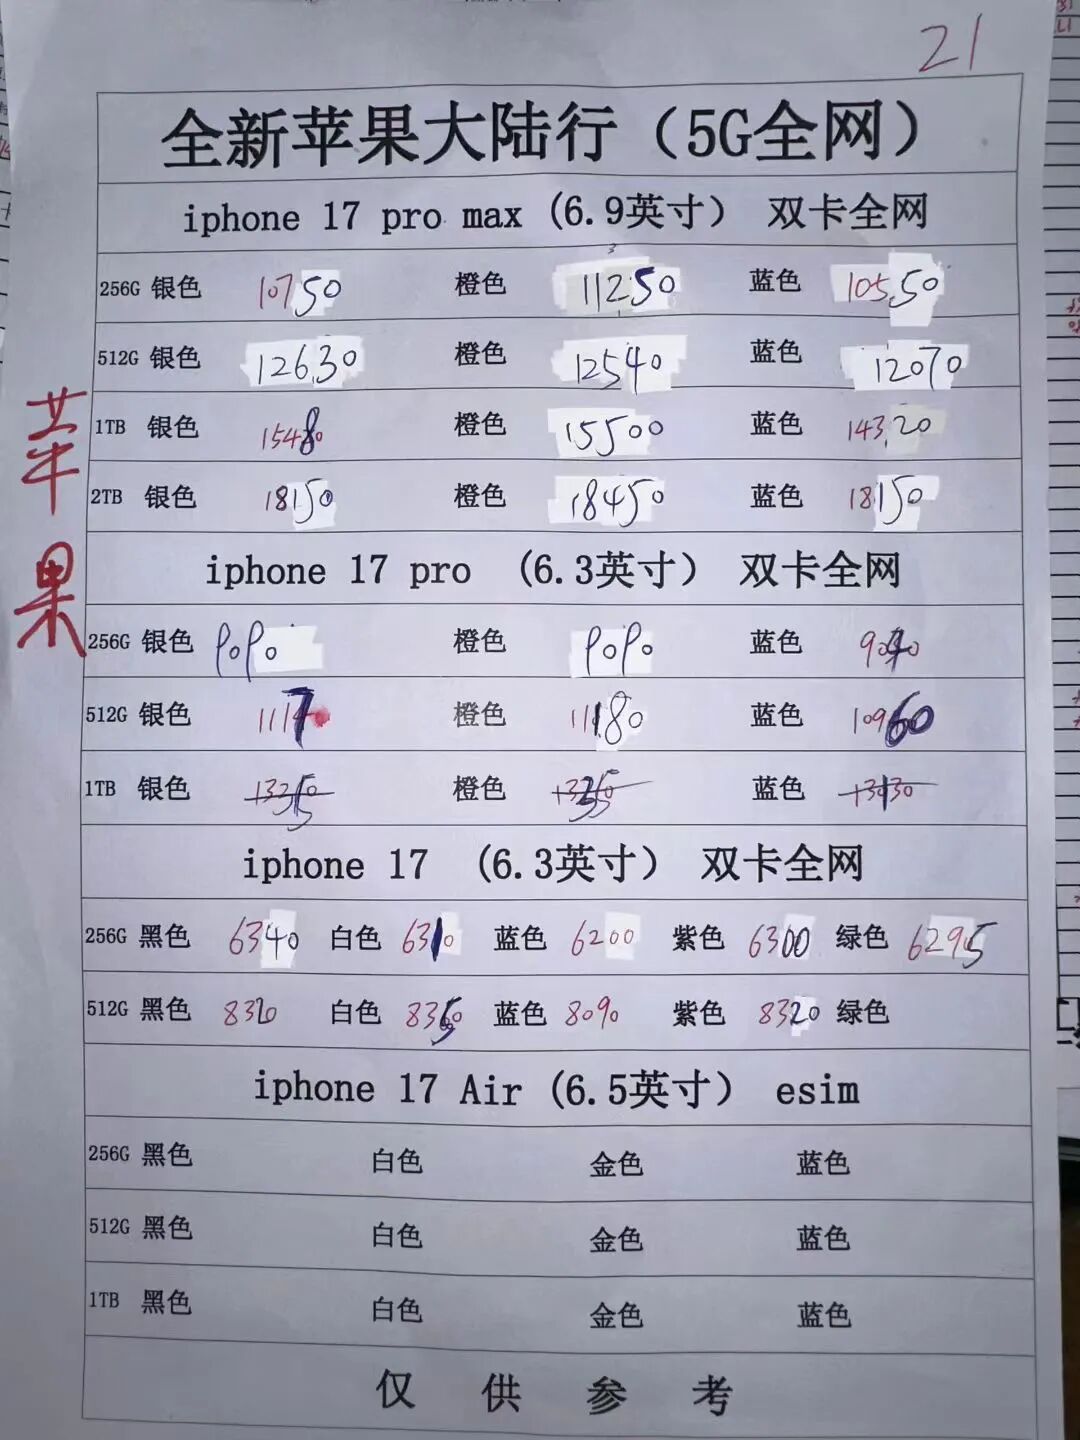 21
全新苹果大陆行（5G全网）
iphone 17 pro max（6.9英寸） 双卡全网
256G 银色 10750 橙色 11250 蓝色 10550
512G 银色 12630 橙色 12540 蓝色 12070
1TB 银色 15480 橙色 15500 蓝色 14320
2TB 银色 18150 橙色 18450 蓝色 18150
苹果
iphone 17 pro （6.3英寸） 双卡全网
256G 银色 9090 橙色 9090 蓝色
512G 银色 橙色 11180 蓝色 10960
1TB 银色 橙色 蓝色
iphone 17 （6.3英寸） 双卡全网
256G 黑色 6340 白色 6310 蓝色 6200 紫色 6300 绿色 6295
512G 黑色 8320 白色 蓝色 8090 紫色 8320 绿色
iphone 17 Air（6.5英寸） esim
256G 黑色 白色 金色 蓝色
512G 黑色 白色 金色 蓝色
1TB 黑色 白色 金色 蓝色
仅供参考